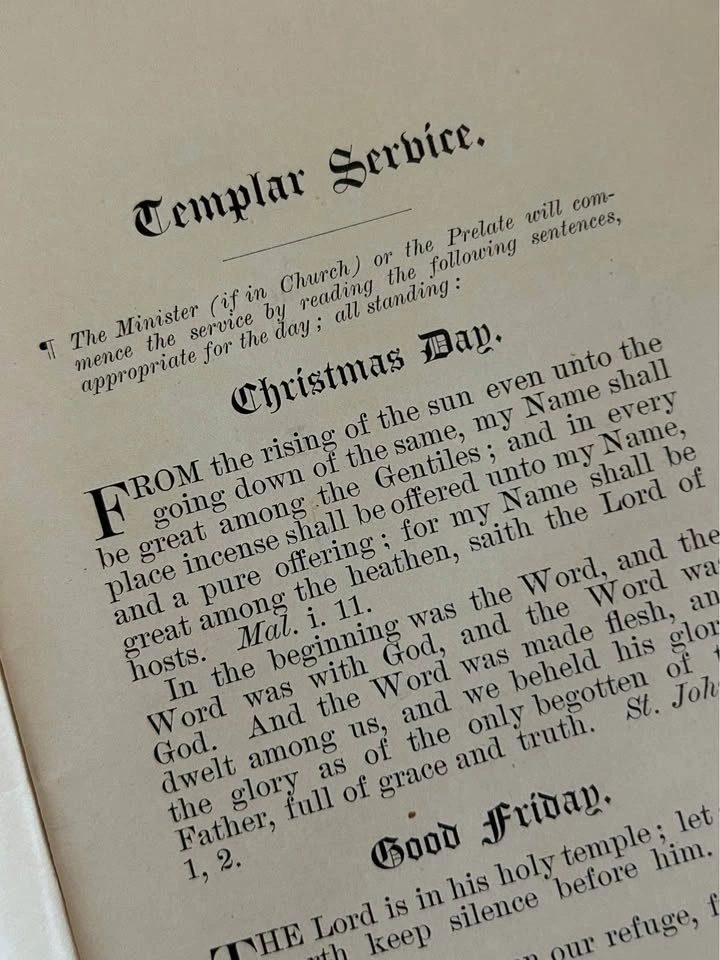 Templar Service.
¶ The Minister (if in Church) or the Prelate will com-
mence the service by reading the following sentences,
appropriate for the day; all standing:
Christmas Day.
FROM the rising of the sun even unto the
going down of the same, my Name shall
be great among the Gentiles; and in every
place incense shall be offered unto my Name,
and a pure offering; for my Name shall be
great among the heathen, saith the Lord of
hosts. Mal. i. 11.
In the beginning was the Word, and the
Word was with God, and the Word wa
God. And the Word was made flesh, an
dwelt among us, and we beheld his glor
the glory as of the only begotten of t
Father, full of grace and truth. St. Joh
1, 2.
Good Friday.
THE Lord is in his holy temple; let
keep silence before him.
our refuge, f